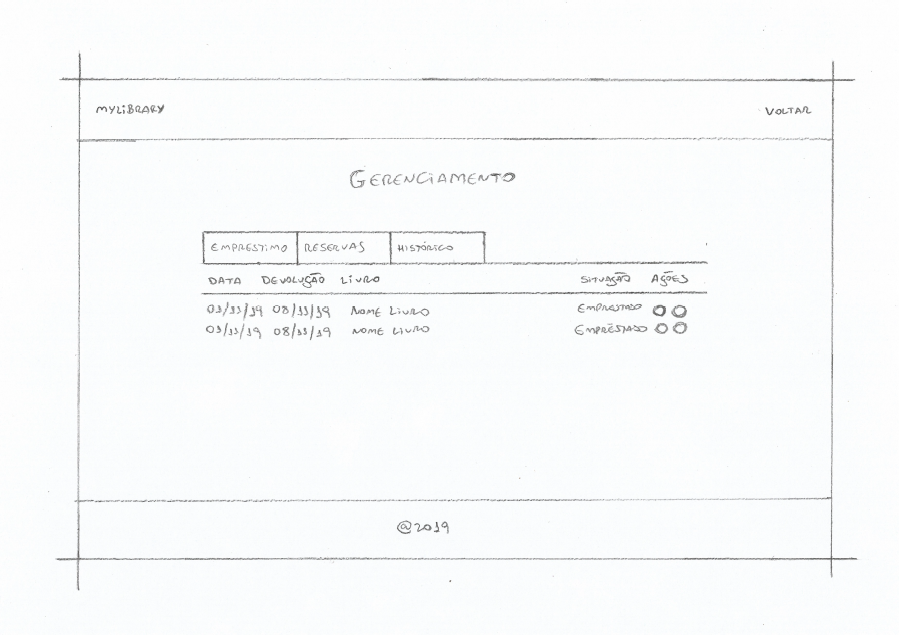 MYLIBRARY VOLTAR
GERENCIAMENTO
EMPRESTIMO RESERVAS HISTÓRICO
DATA DEVOLUÇÃO LIVRO SITUAÇÃO AÇÕES
01/11/19 08/11/19 NOME LIVRO EMPRESTADO
01/11/19 08/11/19 NOME LIVRO EMPRESTADO
@2019